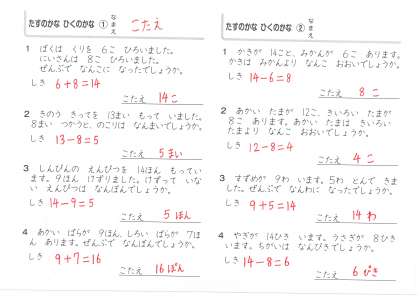 たすのかな ひくのかな ① なまえ こたえ
1 ぼくは くりを 6こ ひろいました。
にいさんは 8こ ひろいました。
ぜんぶで なんこに なったでしょうか。
しき 6+8=14
こたえ 14こ
2 きのう きってを 13まい もって いました。
8まい つかうと、のこりは なんまいでしょうか。
しき 13-8=5
こたえ 5まい
3 しんぴんの えんぴつを 14ほん もってい
ます。9ほん けずりました。けずって いな
い えんぴつは なんぼんでしょうか。
しき 14-9=5
こたえ 5ほん
4 あかい ばらが 9ほん、しろい ばらが 7ほ
ん あります。ぜんぶで なんぼんでしょうか。
しき 9+7=16
こたえ 16ぽん
たすのかな ひくのかな ② なまえ
1 かきが 14こと、みかんが 6こ あります。
かきは みかんより なんこ おおいでしょうか。
しき 14-6=8
こたえ 8こ
2 あかい たまが 12こ、きいろい たまが
8こ あります。あかい たまは きいろい
たまより なんこ おおいでしょうか。
しき 12-8=4
こたえ 4こ
3 すずめが 9わ います。5わ とんで きま
した。ぜんぶで なんわに なったでしょうか。
しき 9+5=14
こたえ 14わ
4 やぎが 14ひき います。うさぎが 8ひき
います。ちがいは なんびきでしょうか。
しき 14-8=6
こたえ 6ぴき